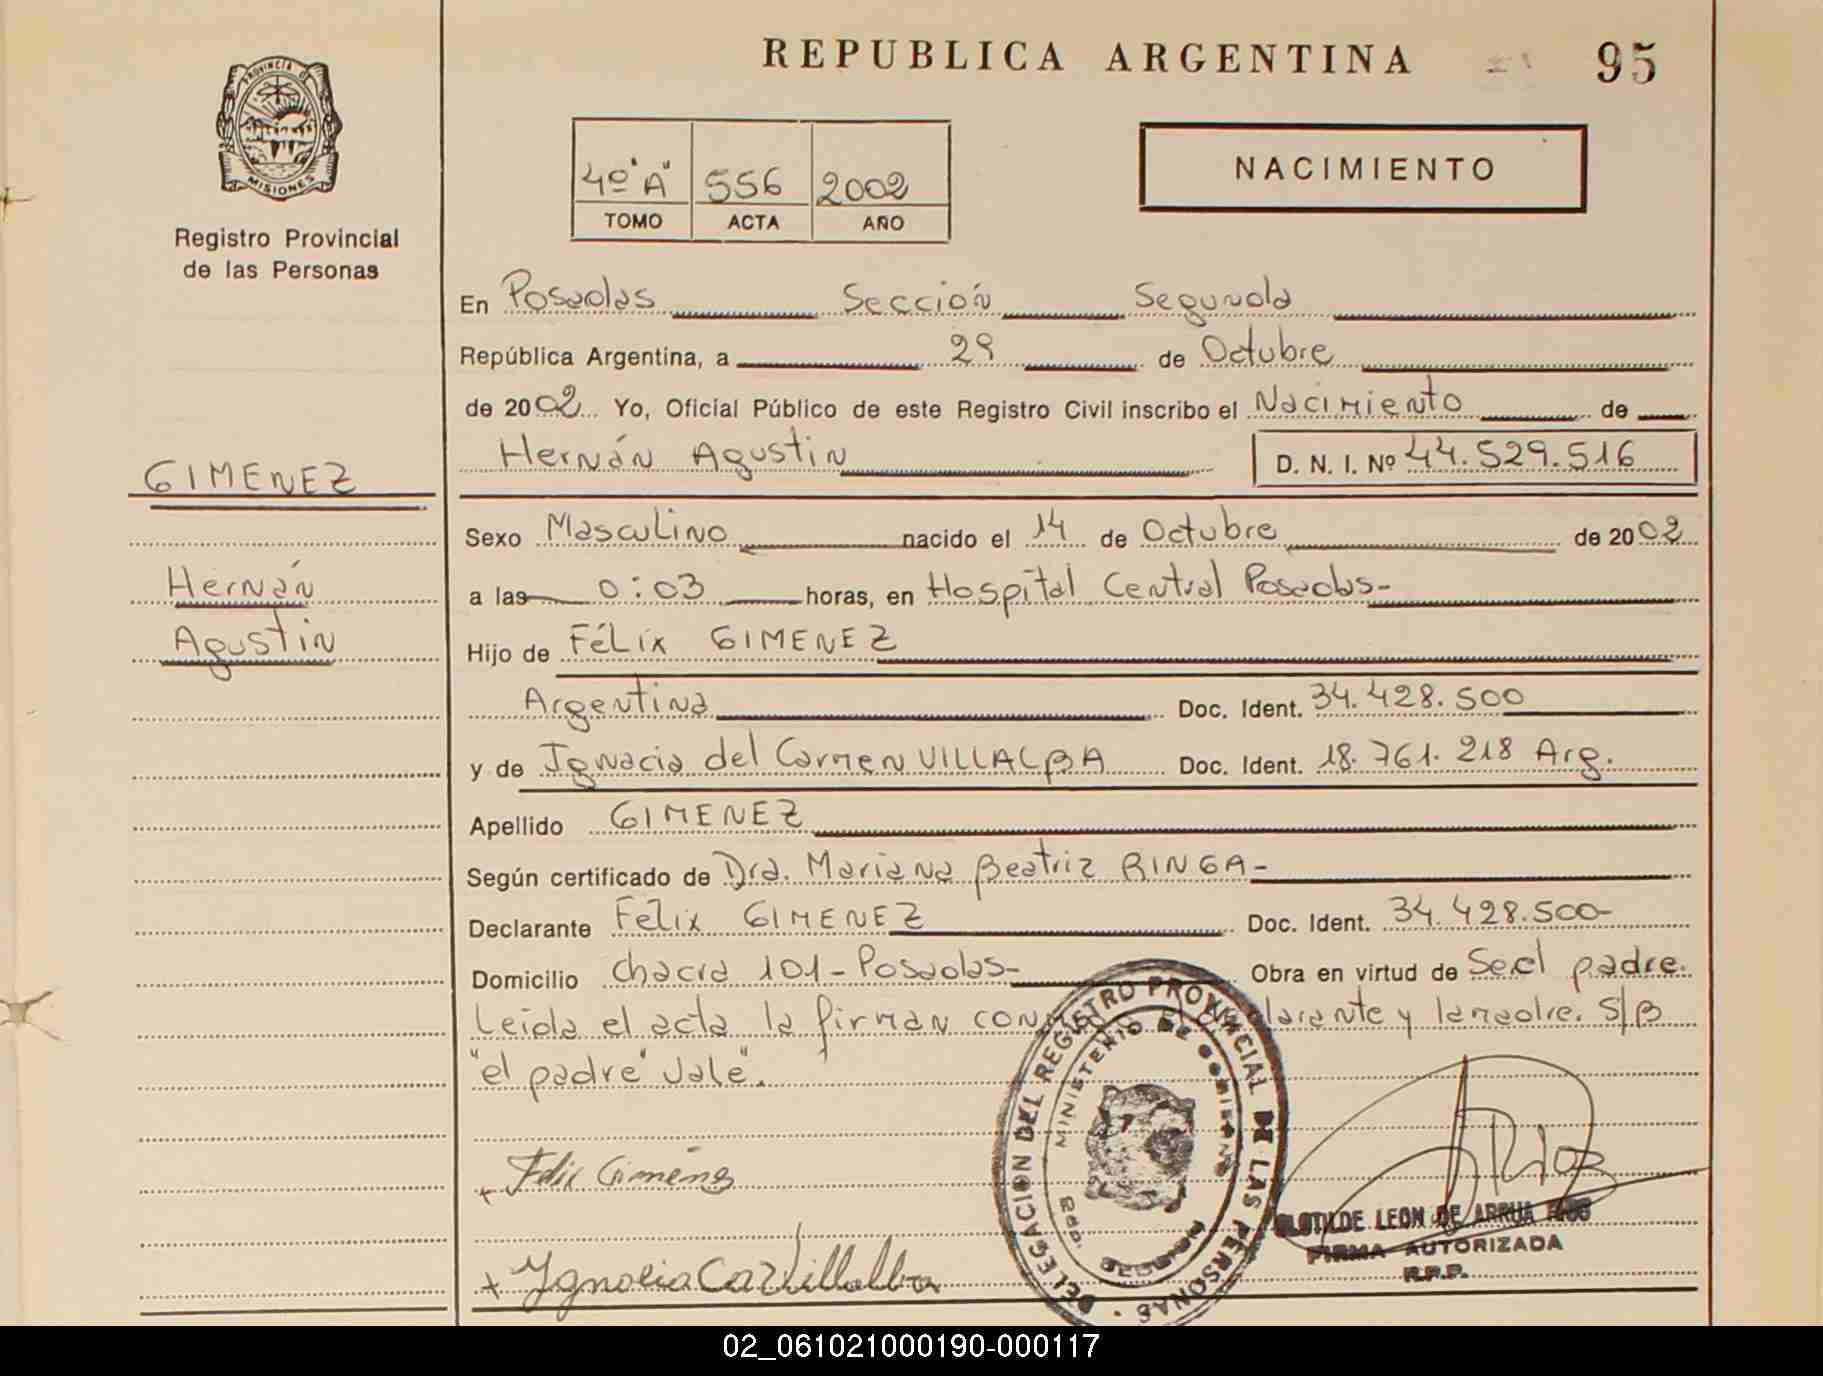 REPUBLICA ARGENTINA 95
PROVINCIA DE
MISIONES
Registro Provincial
de las Personas
4º "A" 556 2002
TOMO ACTA AÑO
NACIMIENTO
En Posadas Sección Segunda
República Argentina, a 29 de Octubre
de 2002 Yo, Oficial Público de este Registro Civil inscribo el Nacimiento de
Hernán Agustin D. N. I. Nº 44.529.516
GIMENEZ
Hernán
Agustin
Sexo Masculino nacido el 14 de Octubre de 2002
a las 0:03 horas, en Hospital Central Posadas-
Hijo de Félix GIMENEZ
Argentina Doc. Ident. 34.428.500
y de Ignacia del Carmen VILLALBA Doc. Ident. 18.761.218 Arg.
Apellido GIMENEZ
Según certificado de Dra. Mariana Beatriz RINGA-
Declarante Félix GIMENEZ Doc. Ident. 34.428.500-
Domicilio Chacra 101-Posadas- Obra en virtud de Se.el padre.
Leida el acta la firman conmigo el declarante y la madre. S/B
"el padre" Vale".
DELEGACION DEL REGISTRO PROVINCIAL DE LAS PERSONAS
MINISTERIO DE GOBIERNO
Felix Giménez
Ygnacia Ca Villalba
CLOTILDE LEON DE ARRUA RIOS
FIRMA AUTORIZADA
R.P.P.
02_061021000190-000117